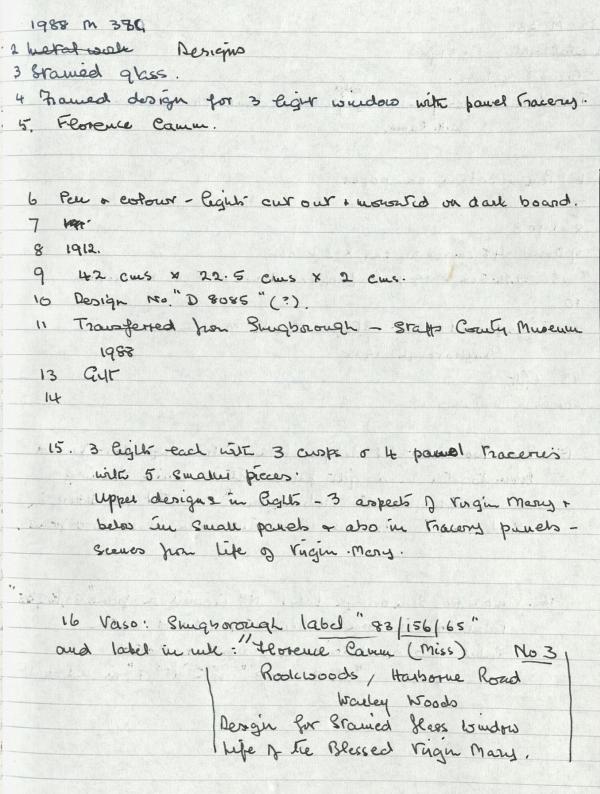 1988 M 384
2 Metalwork Designs
3 Stained glass.
4 Framed design for 3 light window with panel tracery.
5. Florence Camm.
6 Pen & colour - lights cut out & mounted on dark board.
7
8 1912.
9 42 cms x 22.5 cms x 2 cms.
10 Design No. "D 8085" (?)
11 Transferred from Shugborough - Staffs County Museum
1988
13 Gift
14
15. 3 lights each with 3 cusps & 4 panel traceries
with 5 smaller pieces.
Upper designs in lights - 3 aspects of Virgin Mary &
below in small panels & also in tracery panels -
scenes from life of Virgin Mary.
16 Verso: Shugborough label "83/156/65"
and label in ink: "Florence Camm (Miss) No 3
Rookwoods, Harborne Road
Warley Woods
Design for Stained Glass Window
Life of the Blessed Virgin Mary.